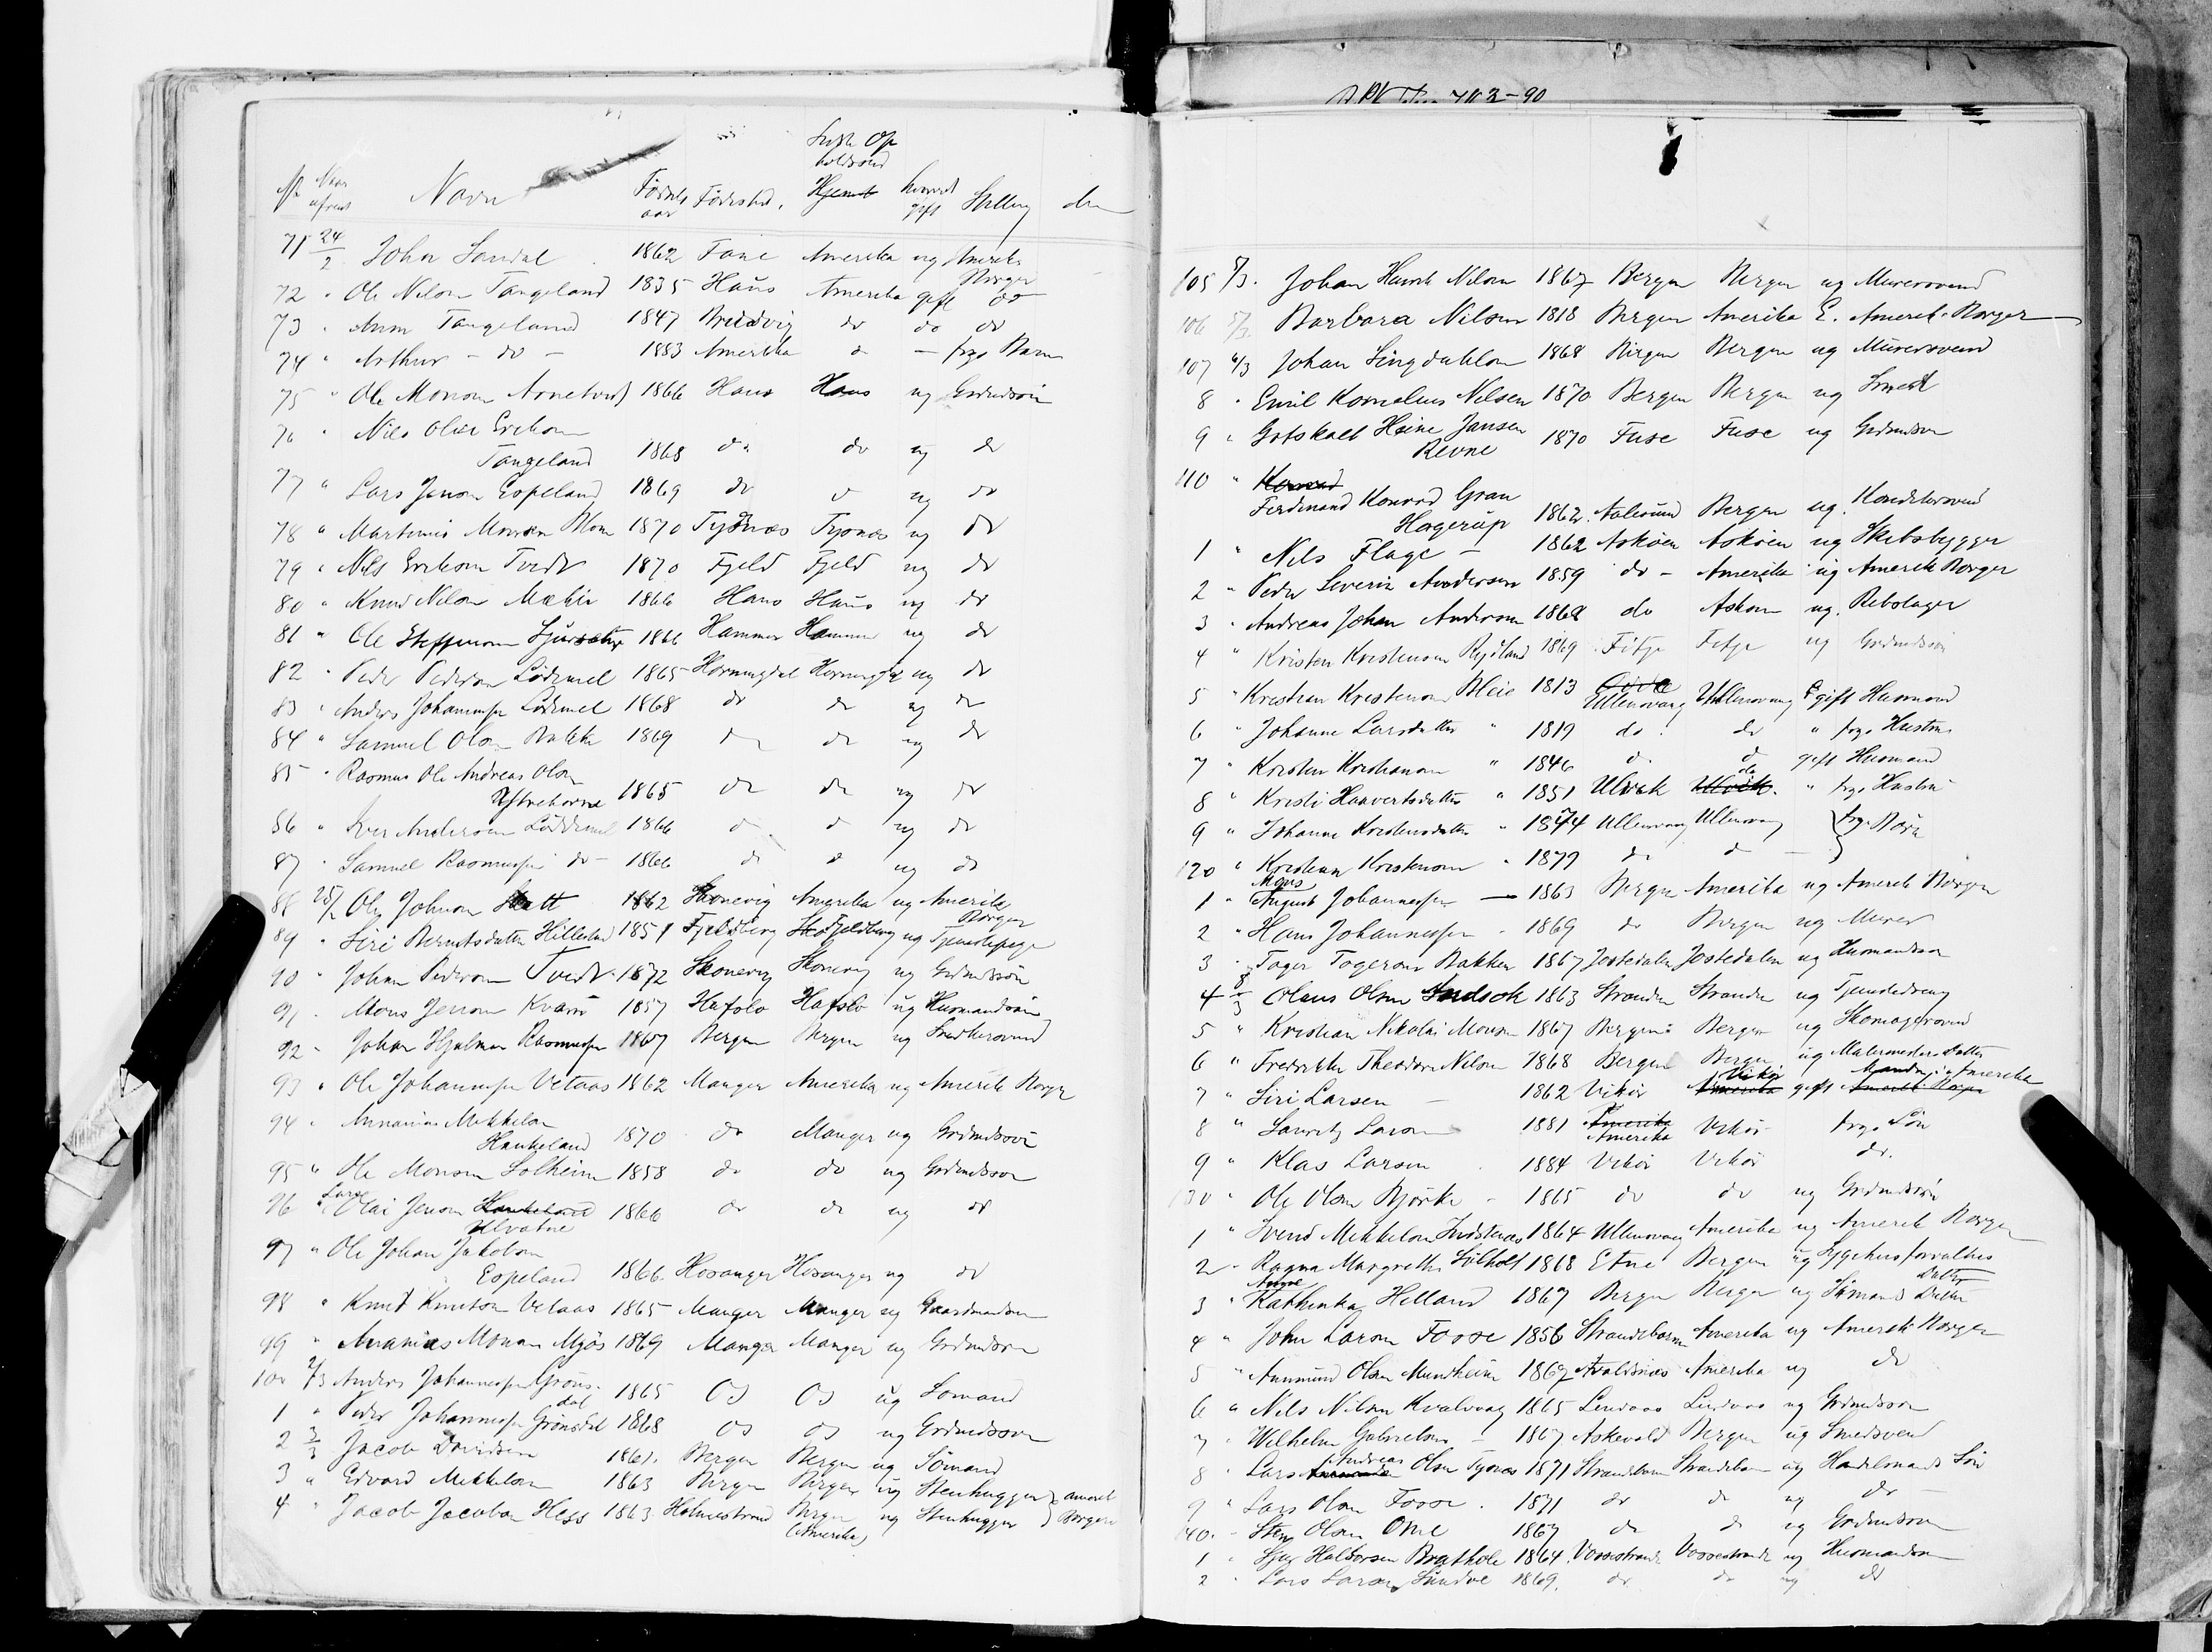 Navn Fødsels aar Fødested. Hjemst hvorvidt gift Stilling
71 24/2 John Sandal 1862 Fane Amerika ug Amerik Borger
72 " Ole Nilson Tangeland 1835 Haus Amerika gift do
73 " Anna Tangeland 1847 do do do
74 " Arthur - do - 1883 Amerika do - Barn
75 " Ole Monsen 1866 Haus Haus ug Grdmdsön
76 " Nils Olai Erikson
Tangeland 1868 do do ug do
77 " Lars Jenson Espeland 1869 do do ug do
78 " Martinus Monsen 1870 Tysnæs Tysnæs ug do
79 " Nils Erikson Tvedt 1870 Fjeld Fjeld ug do
80 " Knud Nilson 1866 Haus Haus ug do
81 " Ole Steffenson 1866 Hammer Hammer ug do
82 " Peder Pederson Lödemel 1865 Horningdal Horningdal ug do
83 " Anders Johannesen Lödemel 1868 do do ug do
84 " Samuel Olsen 1869 do do ug do
85 " Rasmus Ole Andreas Olsen
1865 do do ug do
86 " Iver Anderson Löddemel 1866 do do ug do
87 " Samuel Rasmussen do - 1866 do do ug do
88 25/2 Ole Johnson 1862 Skonevig Amerika ug Amerik Borger
89 " Siri Berntsdatter 1851 Fjeldberg Fjeldberg ug Tjenestepige
90 " Johan Pederson Tvedt 1872 Skonevig Skonevig ug Grdmdssön
91 " Mons Jenson Kvam 1857 Hafslo Hafslo ug Husmandssön
92 " Johan Hjalmar Rasmussen 1867 Bergen Bergen ug Snedkersvend
93 " Ole Johannesen Vetaas 1862 Manger Amerika ug Amerik Borger
94 " Annanias Mikkelson
Haukeland 1870 do Manger ug Grdmdssön
95 " Ole Monsen Solheim 1858 do do ug Grdmdsson
96 " Lars Olai Jenson Haukeland
Ulvatne 1866 do do ug do
97 " Ole Johan Jakobson
Espeland 1866 Hosanger Hosanger ug do
98 " Knut Knutson Vetaas 1865 Manger Manger ug Gaardmandson
99 " Ananias Monsen Mjös 1869 Manger Manger ug Grdmdson
100 2/3 Anders Johannessen Gröns-
dal 1865 Os Os ug Sömand
1 " Peder Johannessen Grönsdal 1868 Os Os ug Grdmdssön
2 3/3 Jacob Davidsen 1861. Bergen Bergen ug Sömand
3 " Edvard Mikkelson 1863 Bergen Bergen ug Stenhugger
4 " Jacob Jacobsen Hess 1863 Holmestrand Bergen ug Stenhugger } amerik Borgere
(Amerika)
105 5/3. Johan Henrik Nilson 1867 Bergen Bergen ug Murersvend
106 5/3. Barbara Nilsen 1818 Bergen Amerika E. Amerik. Borger
107 6/3 Johan 1868 Bergen Bergen ug Murersvend
8 " Emil Kornelius Nilsen 1870 Bergen Bergen ug
9 " Gotskalk Heine Jansen
Revne 1870 Fuse Fuse ug Grdmdson
110 " Konrad
Ferdinand Konrad Gran
Hagerup 1862 Aalesund Bergen ug. Konditorsvend
1 " Nils Flage - 1862 Askøen Askøen ug Skibsbygger
2 " Peder Severin Andersen 1859 do - Amerika ug Amerik Borger
3 " Andreas Johan Anderson 1868 do Askøen ug. Rebslager
4 " Kristen Kristenson 1869 Fitje Fitje ug Grdmdssön
5 " Kristian Kristenson Bleie 1813 Ullensvang Ullensvang gift Husmand
6 " Johanne Larsdatter " 1819 do. do " Hustru
7 " Kristen Kristianson " 1846 do do gift Husmand
8 " Kristi Haavertsdatter " 1851 Ulvik Ulvik do " Hustru
9 " Johanne Kristensdatter " 1874 Ullensvang Ullensvang } Börn
120 " Kristian Kristenson " 1879 do do
1 " Mons August Johannessen 1863 Bergen Amerika ug Amerik Borger
2 " Hans Johannessen 1869 do Bergen ug Murer
3 " Toger Togerson Bakken 1867 Jostedalen Jostedalen ug Husmandson
4 8/3 Olaus Olsen 1863 Stranden Stranden ug Tjenestedreng
5 " Kristian Nikolai Monsen 1867 Bergen Bergen ug Skomagersvend
6 " Fredrikke Theodora Nilsen 1868 Bergen Bergen ug Malermesters Datter
7 " Siri Larsen - 1862 Vikör Amerika Vikör gift Amerik Borger Manden i Amerika
8 " Lauritz Larsen 1881 Amerika Amerika Vikör Sön
9 " Klas Larsen 1884 Vikör Vikör do.
130 " Ole Olsen Björke - 1865 do do ug Grdmdssön
1 " Svend Mikkelson 1864 Ullensvang Amerika ug Amerik Borger
2 " Ragna Margrethe 1868 Etne Bergen ug Sygehusforvalters Datter
3 " Kathinka Helland 1867 Bergen Bergen ug Sömands Datter
4 " John Larson Fosse 1856 Strandebarm Amerika ug Amerik Borger
5 " Aamund Olsen Mundheim 1867 Avaldsnæs Amerika ug do
6 " Nils Nilsen Kvalvaag 1865 Lindaas Lindaas ug Grdmdsson
7 " Wilhelm Gabrielsen - 1867 Askevold Bergen ug Smedsvend
8 " Lars Andreas Olsen Tysnæs 1871 Strandebarm Strandebarm ug Handelsmands Sön
9 " Lars Olsen Fosse. 1871 do do ug do
140. " Sten Olsen Ome 1867 do do ug Grdmdsson
1 " Sjur Halvorsen Brathole 1864 Vossestrand Vossestrand ug Husmandson
2 " Lars Larsen 1869. do do ug do